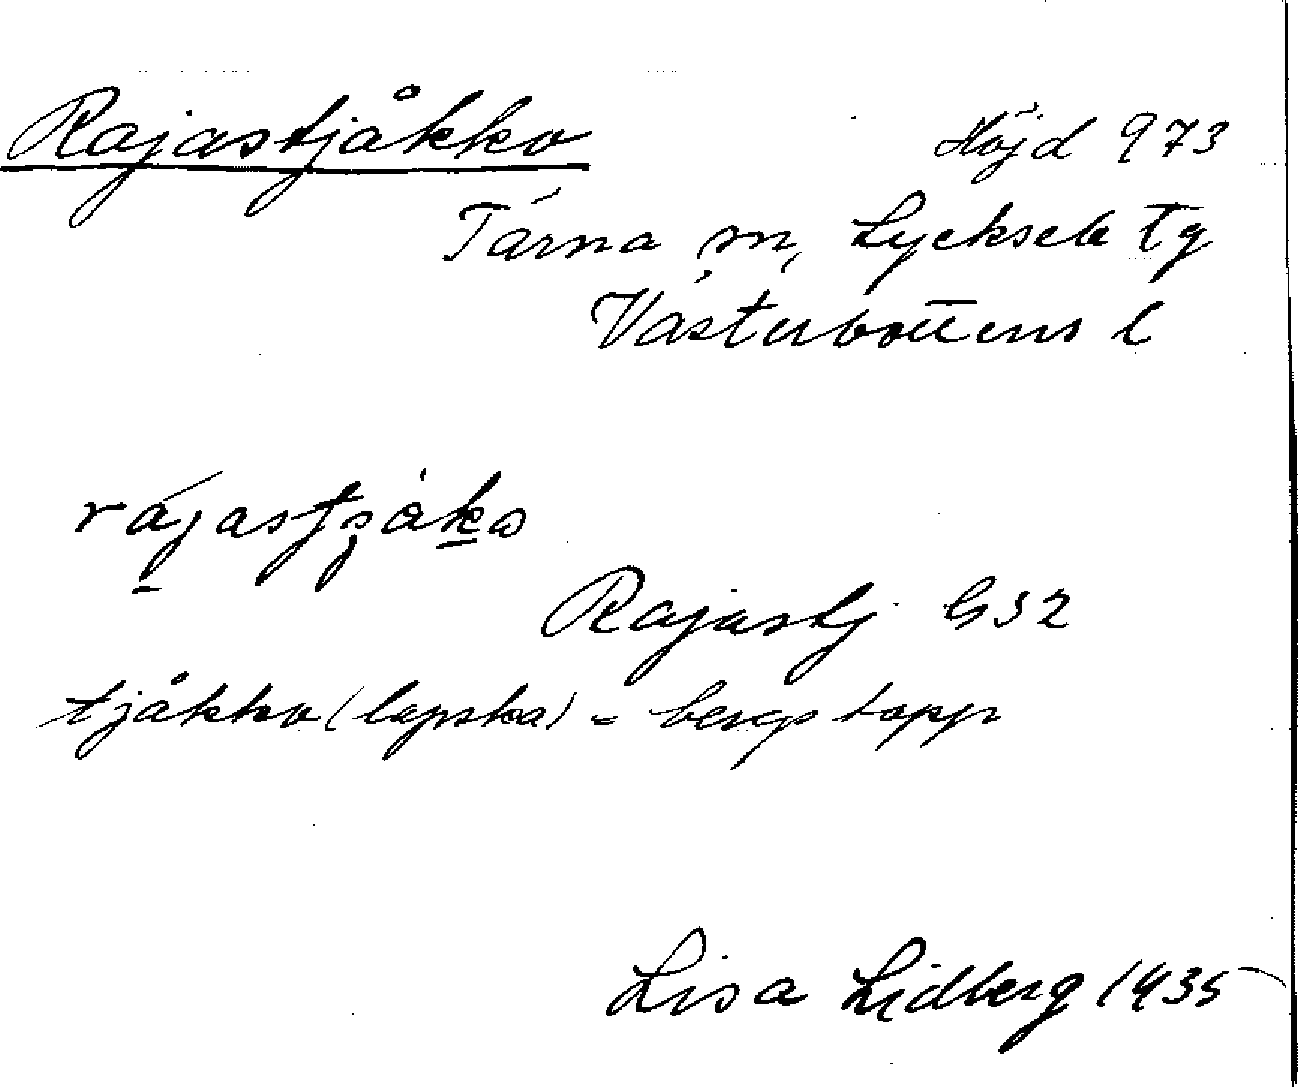 Rajastjåkko Höjd 973
Tärna sn, Lycksele tg
Västerbottens l
Rajastj GS2
tjåkko (lapska) = bergstopp
Lisa Lidberg 1935